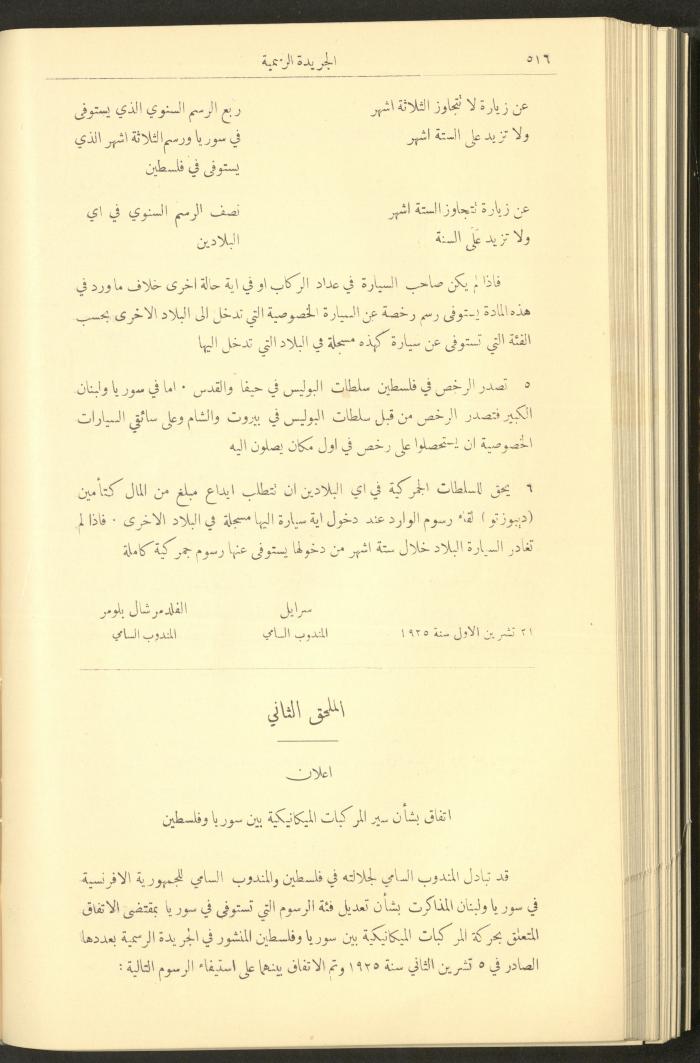 ٥١٦ الجريدة الرسمية
عن زيارة لا تتجاوز الثلاثة اشهر ربع الرسم السنوي الذي يستوفى
ولا تزيد على الستة اشهر في سوريا ورسم الثلاثة اشهر الذي
يستوفى في فلسطين
عن زيارة تتجاوز الستة اشهر نصف الرسم السنوي في اي
ولا تزيد عَلَى السنة البلادين
فاذا لم يكن صاحب السيارة في عداد الركاب او في اية حالة اخرى خلاف ما ورد في
هذه المادة يستوفى رسم رخصة عن السيارة الخصوصية التي تدخل الى البلاد الاخرى بحسب
الفئة التي تستوفى عن سيارة كهذه مسجلة في البلاد التي تدخل اليها
٥ تصدر الرخص في فلسطين سلطات البوليس في حيفا والقدس ٠ اما في سوريا ولبنان
الكبير فتصدر الرخص من قبل سلطات البوليس في بيروت والشام وعلى سائقي السيارات
الخصوصية ان يستحصلوا على رخص في اول مكان يصلون اليه
٦ يحق للسلطات الجمركية في اي البلادين ان تتطلب ايداع مبلغ من المال كتأمين
(ديبوزتو) لقاء رسوم الوارد عند دخول اية سيارة اليها مسجلة في البلاد الاخرى ٠ فاذا لم
تغادر السيارة البلاد خلال ستة اشهر من دخولها يستوفى عنها رسوم جمركية كاملة
سرايل الفلدمرشال بلومر
٢١ تشرين الاول سنة ١٩٢٥ المندوب السامي المندوب السامي
الملحق الثاني
اعلان
اتفاق بشأن سير المركبات الميكانيكية بين سوريا وفلسطين
قد تبادل المندوب السامي لجلالته في فلسطين والمندوب السامي للجمهورية الافرنسية
في سوريا ولبنان المذاكرت بشأن تعديل فئة الرسوم التي تستوفى في سوريا بمقتضى الاتفاق
المتعلق بحركة المركبات الميكانيكية بين سوريا وفلسطين المنشور في الجريدة الرسمية بعددها
الصادر في ٥ تشرين الثاني سنة ١٩٢٥ وتم الاتفاق بينهما على استيفاء الرسوم التالية :